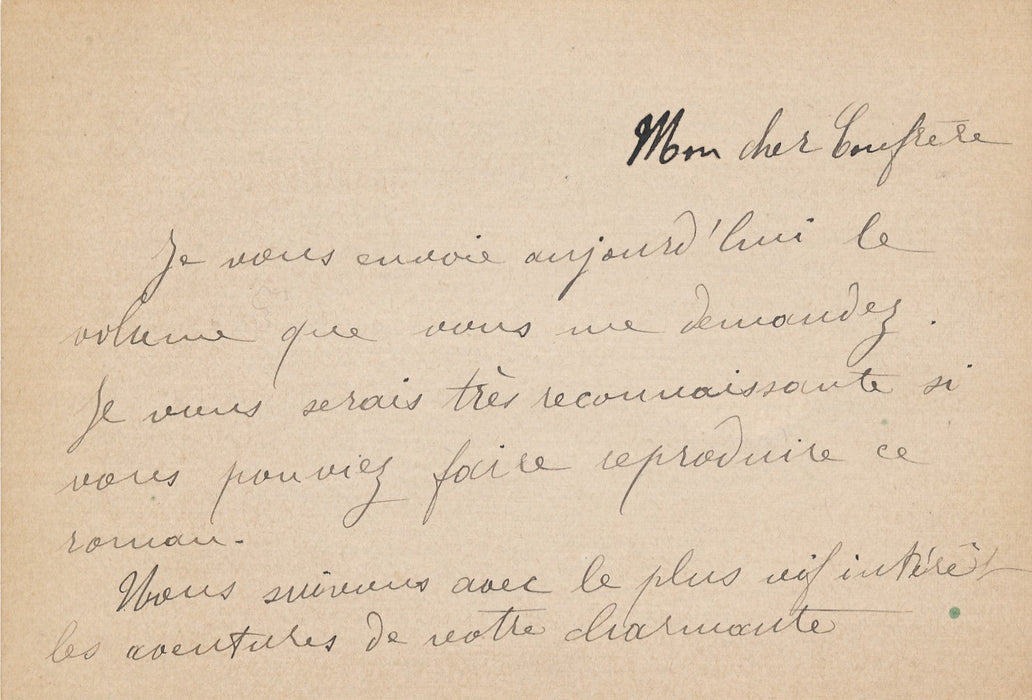 Mon cher Confrère
Je vous envoie aujourd'hui le
volume que vous me demandez.
Je vous serais très reconnaissante si
vous pouviez faire reproduire ce
roman.
Nous suivons avec le plus vif intérêt
les aventures de votre charmante